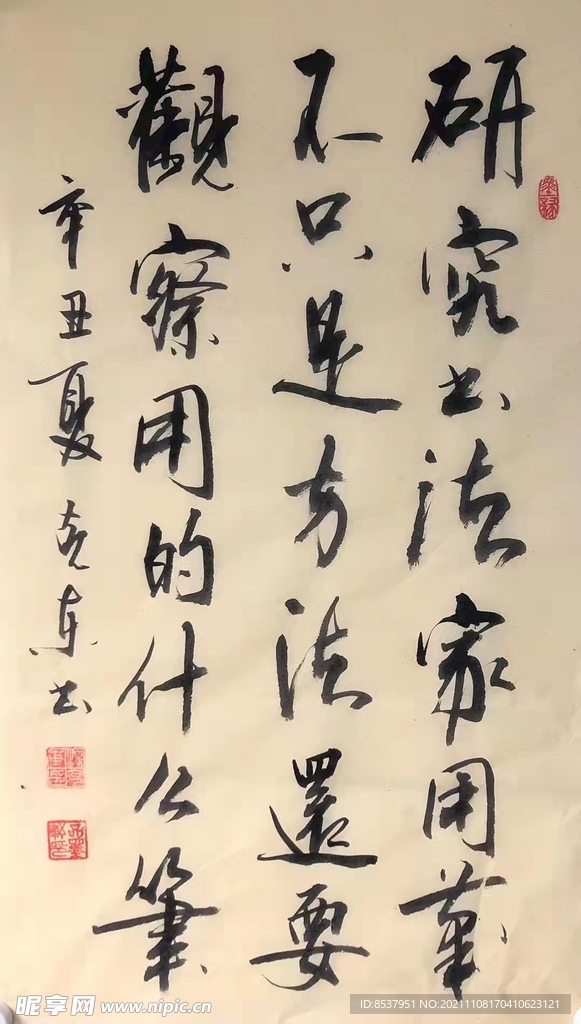 研究书法家用笔
不只是方法還要
觀察用的什么筆
辛丑夏克东书
昵享网 www.nipic.cn
ID:8537951 NO:20211108170410623121